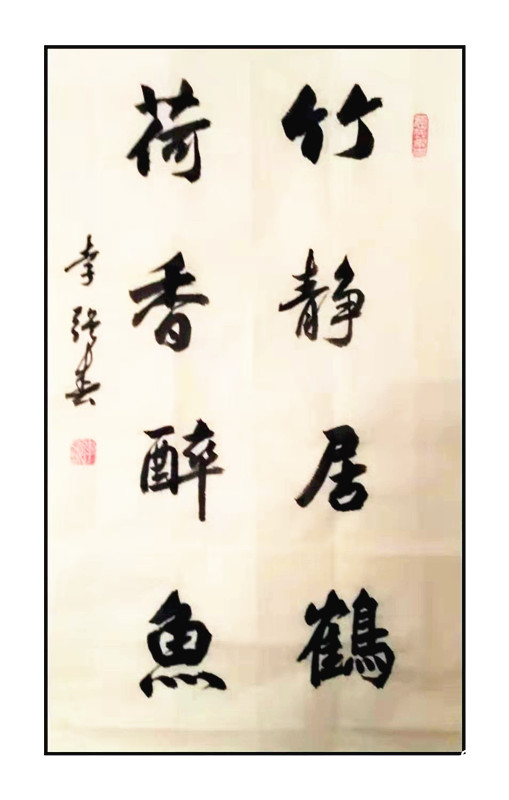 竹静居鶴
荷香醉魚
李强春